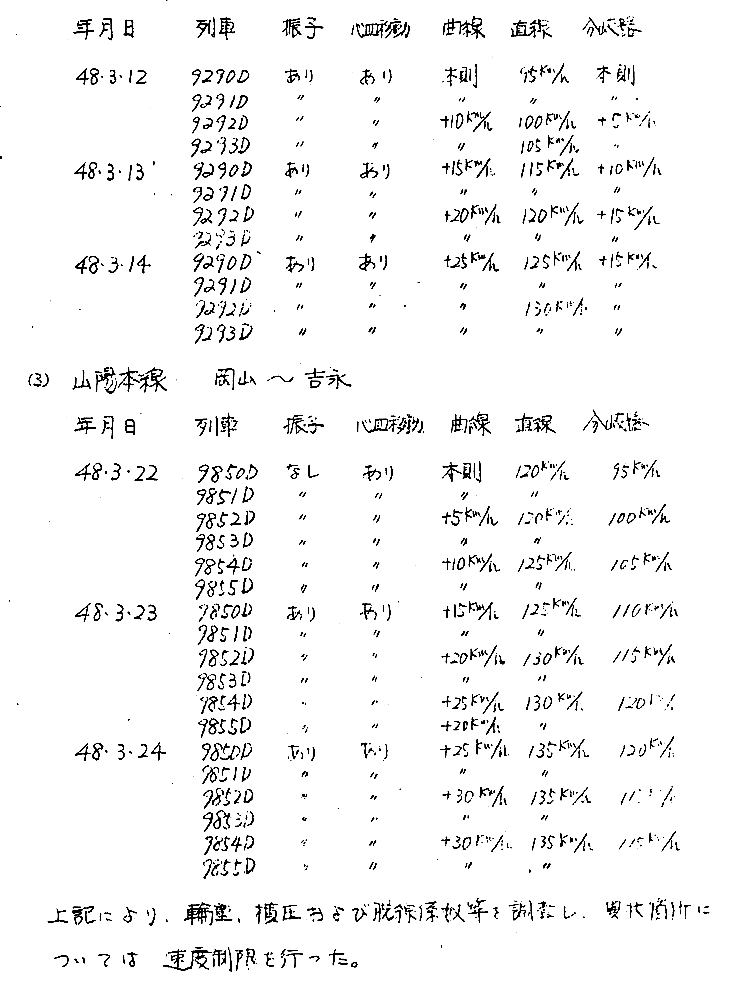 年月日 列車 振子 心皿移動 曲線 直線 分岐器
48・3・12 9290D あり あり 本則 95Km/h 本則
9291D 〃 〃 〃 〃 〃
9292D 〃 〃 +10Km/h 100Km/h +5Km/h
9293D 〃 〃 〃 105Km/h 〃
48・3・13 9290D あり あり +15Km/h 115Km/h +10Km/h
9291D 〃 〃 〃 〃 〃
9292D 〃 〃 +20Km/h 120Km/h +15Km/h
9293D 〃 〃 〃 〃 〃
48・3・14 9290D あり あり +25Km/h 125Km/h +15Km/h
9291D 〃 〃 〃 〃 〃
9292D 〃 〃 〃 130Km/h 〃
9293D 〃 〃 〃 〃 〃
(3) 山陽本線 岡山〜吉永
年月日 列車 振子 心皿移動 曲線 直線 分岐器
48・3・22 9850D なし あり 本則 120Km/h 95Km/h
9851D 〃 〃 〃 〃
9852D 〃 〃 +5Km/h 100Km/h
9853D 〃 〃 〃 〃
9854D 〃 〃 +10Km/h 125Km/h 105Km/h
9855D 〃 〃 〃 〃
48・3・23 9850D あり あり +15Km/h 125Km/h 110Km/h
9851D 〃 〃 〃 〃
9852D 〃 〃 +20Km/h 130Km/h 115Km/h
9853D 〃 〃 〃 〃
9854D 〃 〃 +25Km/h 130Km/h 120Km/h
9855D 〃 〃 +20Km/h 〃
48・3・24 9850D あり あり +25Km/h 135Km/h 120Km/h
9851D 〃 〃 〃 〃
9852D 〃 〃 +30Km/h 135Km/h
9853D 〃 〃 〃 〃
9854D 〃 〃 +30Km/h 135Km/h 115Km/h
9855D 〃 〃 〃 〃
上記により、輪重、横圧および脱線係数等を調査し、異状箇所に
ついては 速度制限を行った。